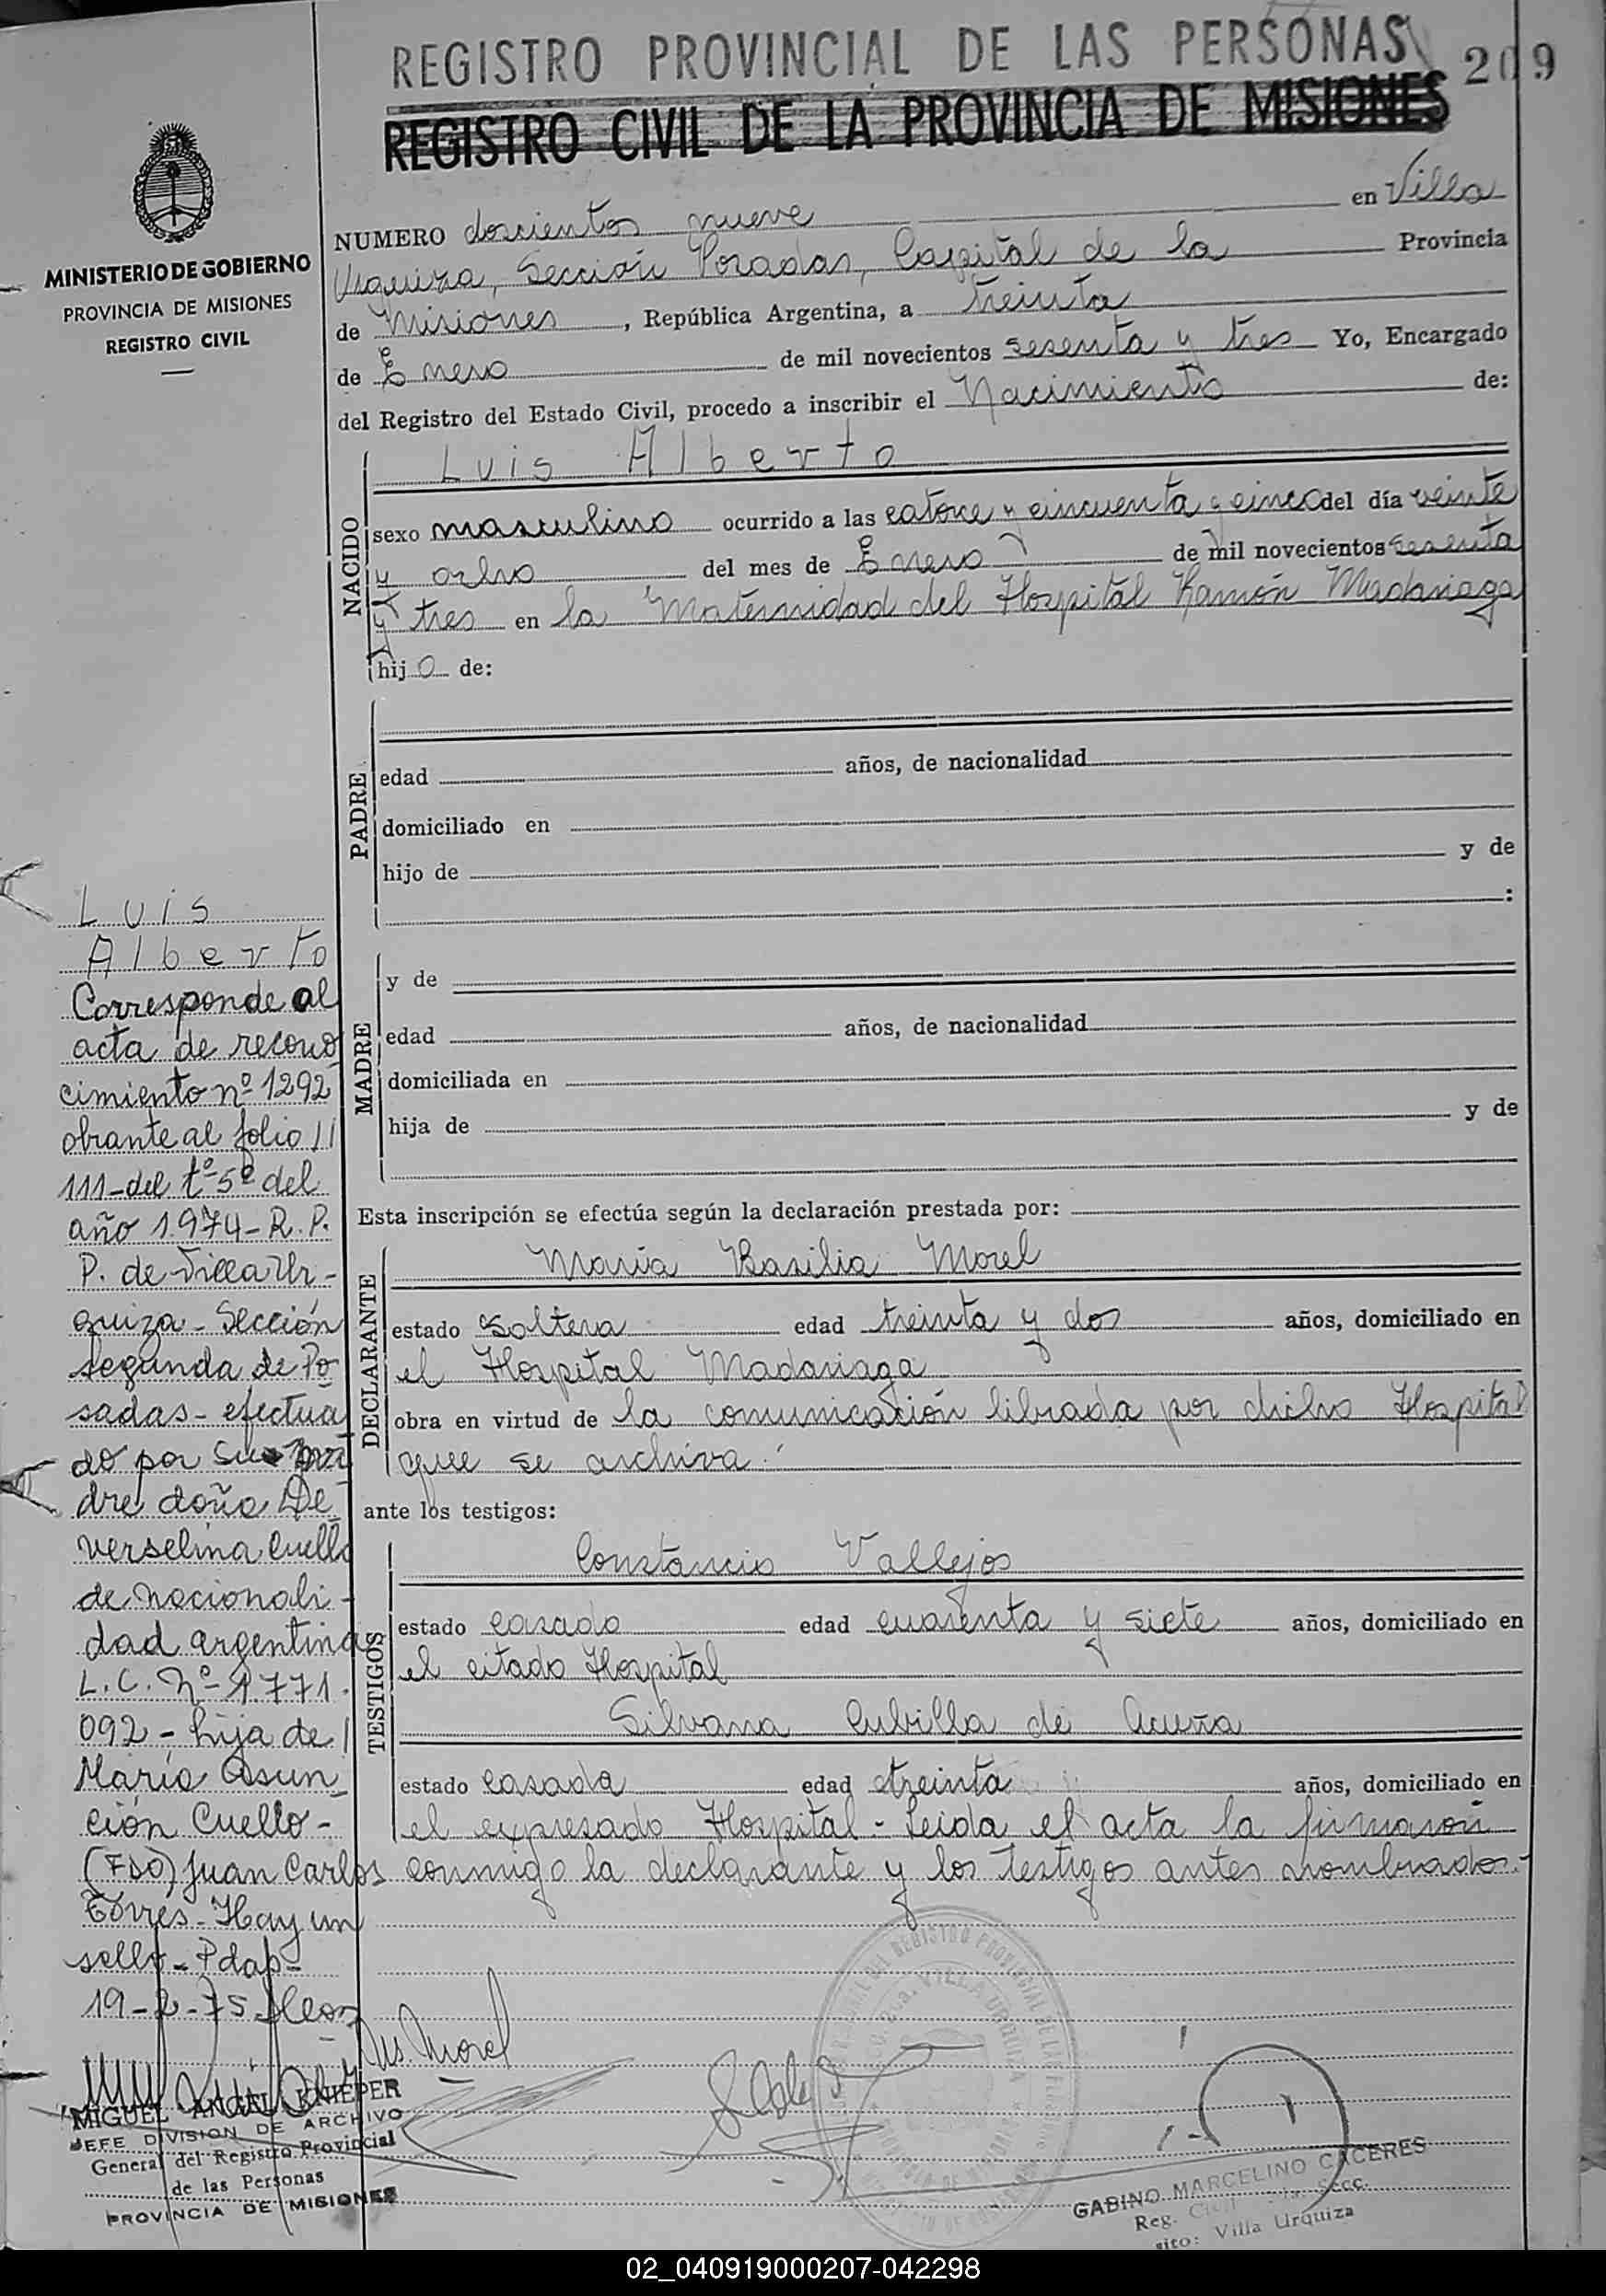 REGISTRO PROVINCIAL DE LAS PERSONAS
209
REGISTRO CIVIL DE LA PROVINCIA DE MISIONES
MINISTERIO DE GOBIERNO
PROVINCIA DE MISIONES
REGISTRO CIVIL
NUMERO doscientos nueve en Villa
Urquiza, Sección Posadas, Capital de la Provincia
de Misiones, República Argentina, a treinta
de Enero de mil novecientos sesenta y tres Yo, Encargado
del Registro del Estado Civil, procedo a inscribir el Nacimiento de:
NACIDO
Luis Alberto
sexo masculino ocurrido a las catorce y cincuenta y cinco del día veinte
y ocho del mes de Enero de mil novecientos sesenta
y tres en la Maternidad del Hospital Ramón Madariaga
hijo de:
PADRE
edad años, de nacionalidad
domiciliado en
hijo de y de
:
MADRE
y de
edad años, de nacionalidad
domiciliada en
hija de y de
Esta inscripción se efectúa según la declaración prestada por:
DECLARANTE
María Basilia Morel
estado soltera edad treinta y dos años, domiciliado en
el Hospital Madariaga
obra en virtud de la comunicación librada por dicho Hospital
que se archiva.
ante los testigos:
TESTIGOS
Constancio Vallejos
estado casado edad cuarenta y siete años, domiciliado en
el citado Hospital
Silvana Cubilla de Acuña
estado casada edad treinta años, domiciliado en
el expresado Hospital - Leida el acta la firmaron
conmigo la declarante y los testigos antes nombrados.-
Luis
Alberto
Corresponde al
acta de recono
cimiento nº 1292
obrante al folio //
111-del tº 5º del
año 1.974- R. P.
P. de Villa Ur-
quiza- Sección
segunda de Po
sadas- efectua
do por su ma
dre doña De
verselina Cuello
de nacionali-
dad argentina
L. C. Nº 1.771.
092- hija de /
María Asun
ción Cuello-
(FDO) Juan Carlos
Torres- Hay un
sello- Pdas-
19-2-75
Ms. Morel
MIGUEL ANGEL KNIEPER
JEFE DIVISION DE ARCHIVO
General del Registro Provincial
de las Personas
PROVINCIA DE MISIONES
VILLA URQUIZA
GABINO MARCELINO CACERES
Reg. Secc.
sito: Villa Urquiza
02_040919000207-042298